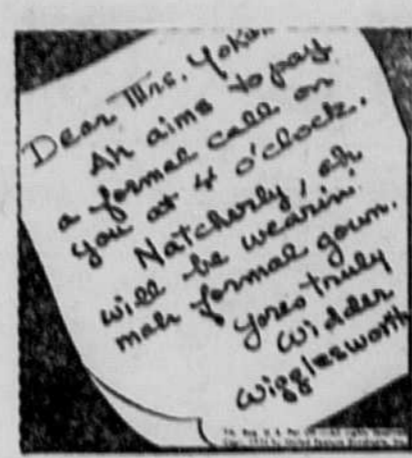 Dear Mrs. Yokum
Ah aims to pay
a formal call on
you at 4 o'clock.
Natcherly, ah
will be wearin'
mah formal gown.
Yores truly
Widder
Wigglesworth